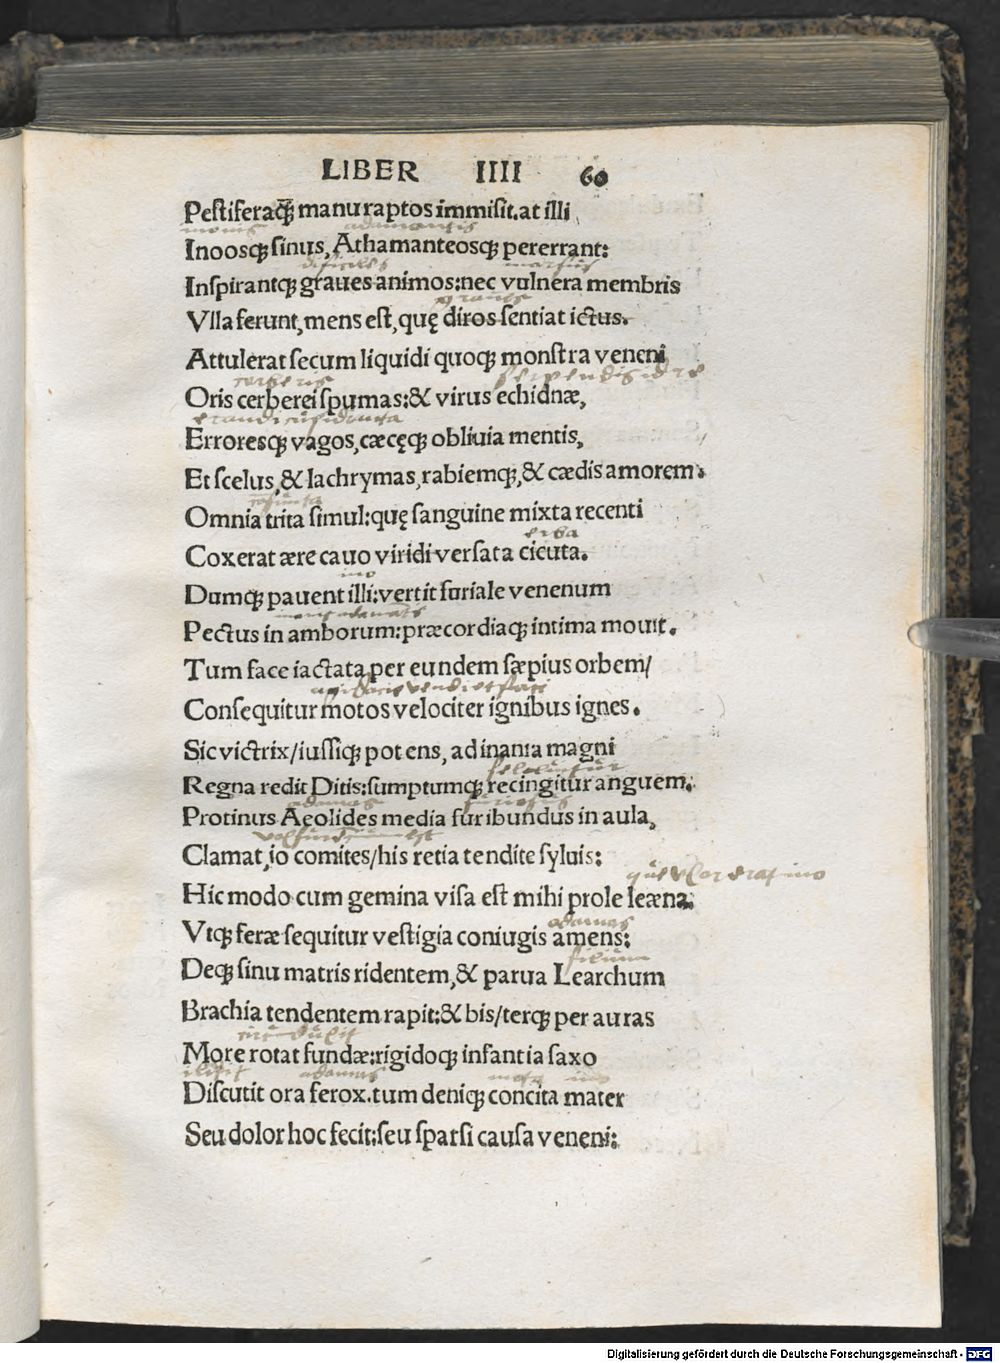 LIBER IIII 60
Pestiferaq̃ manu raptos immisit. at illi
Inoosq; sinus, Athamanteosq; pererrant:
difficiles morsus
Inspirantq; graues animos: nec vulnera membris
graues
Vlla ferunt, mens est, quę diros sentiat ictus.
Attulerat secum liquidi quoq; monstra veneni
cerberis
Oris cerberei spumas: & virus echidnæ,
Erroresq; vagos, cæcęq; obliuia mentis,
Et scelus, & lachrymas, rabiemq;, & cædis amorem:
Omnia trita simul: quę sanguine mixta recenti
erba
Coxerat ære cauo viridi versata cicuta.
ino
Dumq; pauent illi: vertit furiale venenum
Pectus in amborum: præcordiaq; intima mouit.
Tum face iactata per eundem sæpius orbem/
Consequitur motos velociter ignibus ignes.
Sic victrix/ iussiq; potens, ad inania magni
Regna redit Ditis: sumptumq; recingitur anguem.
adamas furiosus
Protinus Aeolides media furibundus in aula,
Clamat, io comites/ his retia tendite syluis:
Hic modo cum gemina visa est mihi prole leæna:
adamas
Vtq; feræ sequitur vestigia coniugis amens:
filium
Deq; sinu matris ridentem, & parua Learchum
Brachia tendentem rapit: & bis/ terq; per auras
More rotat fundæ: rigidoq; infantia saxo
adamas mota ino
Discutit ora ferox. tum deniq; concita mater
Seu dolor hoc fecit: seu sparsi causa veneni:
Digitalisierung gefördert durch die Deutsche Forschungsgemeinschaft - DFG